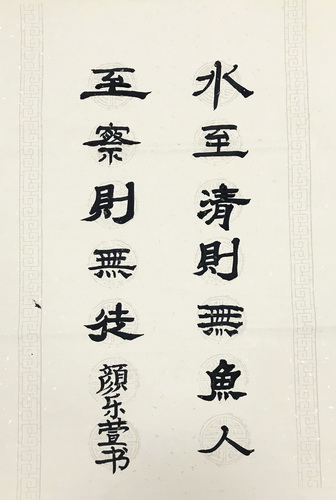 水至清則無魚人
至察則無徒
顏乐萱书